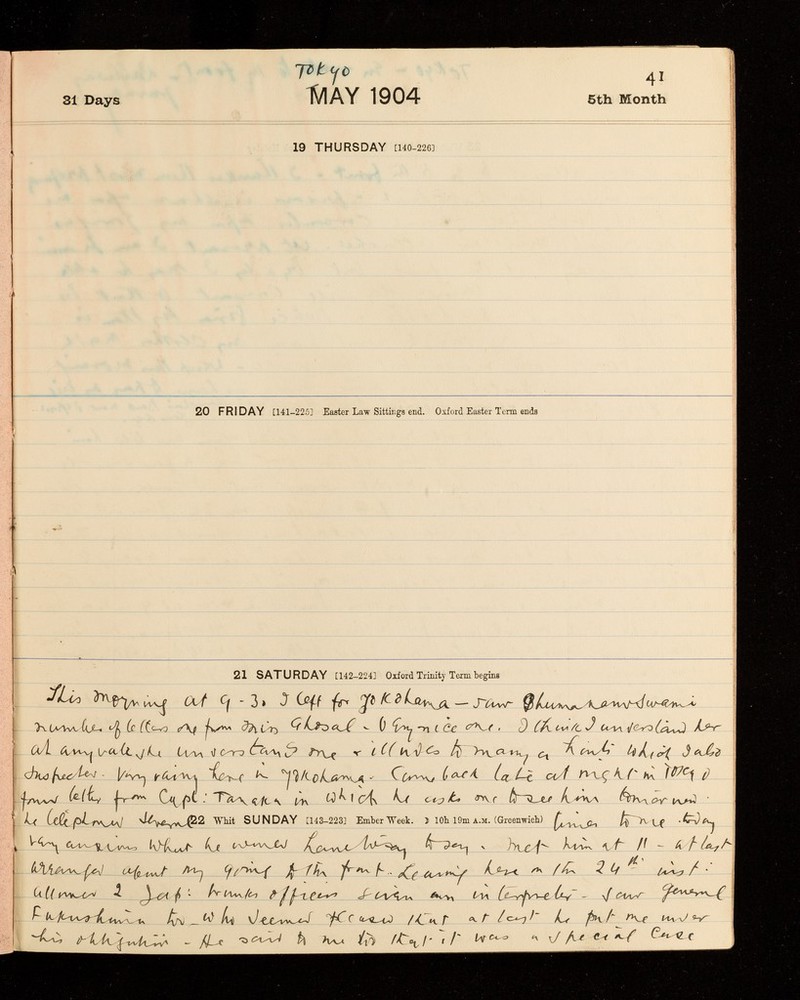 Tokyo
41
31 Days MAY 1904 5th Month
19 THURSDAY [140-226]
20 FRIDAY [141-225] Easter Law Sittings end. Oxford Easter Term ends
21 SATURDAY [142-224] Oxford Trinity Term begins
This morning at 9-30 I left for Yokohama - saw
number of letters one from Miss Ghosal - Very nice one. I think I understand her
at any rate she understands me & alludes to many a which I also
Very rainy here in Yokohama. Came back late at night in Tokyo
found letter from Capt: Tanaka in which he asks me to see him tomorrow.
he telephoned several
22 Whit SUNDAY [143-223] Ember Week. ☽ 10h 19m A.M. (Greenwich)
times to me today
Very anxious what he would have to say. Met him at 11 - at last
arranged about my going to the front. Leaving here on the 24th inst:
allowed 2 Jap: trunks officers given an interpreter. Saw General
Fukushima too who seemed pleased that at last he put me under
his obligation - He said to me too that it was a special case